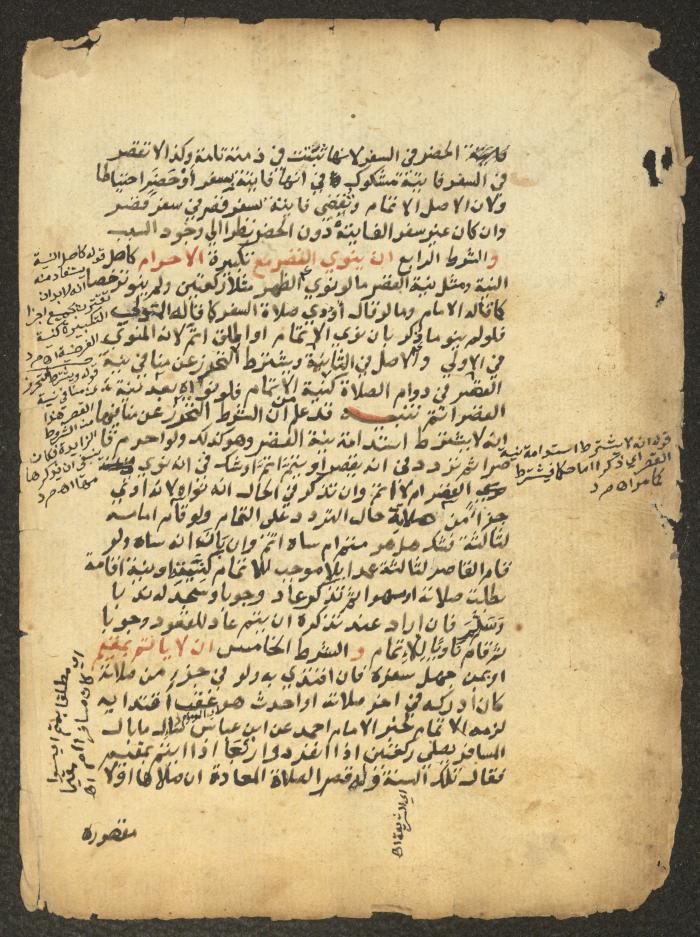 فايتة الحضر في السفر لانها ثبتت في ذمته تامة وكذا لا تقصر
في السفر فايتة مشكوك في انها فايتة سفر أو حضر احتياطا
ولان الاصل الاتمام وتقضي فايتة سفر قصر في سفر قصر
وان كان غير سفر الفايتة دون الحضر نظرا الي وجود السبب
والشرط الرابع ان ينوي القصر مع تكبيرة الاحرام كاصل
النية ومثل نية القصر ما لو نوي الظهر مثلا ركعتين ولم ينو ترخصا
كما قاله الامام وما لو قال أؤدي صلاة السفر كما قاله المتولي
فلو لم ينو ما ذكر بان نوي الاتمام او اطلق اتم لانه المنوي
في الاولي والاصل في الثانية ويشترط التحرز عن منافي نية
القصر في دوام الصلاة كنية الاتمام فلو نواه بعد نية
القصر اتم تنبيه قد علم ان الشرط التحرز عن منافيها
انه لا يشترط استدامة نية القصر وهو كذلك ولو احرم قا
صرا ثم تردد في انه يقصر أو يتم اتم أو شك في انه نوي
القصر ام لا اتم وان تذكر في الحال انه نواه لانه أدي
جزأ من صلاته حال التردد علي التمام ولو قام امامه
لثالثة فشك هل هو متم ام ساه اتم وان بان انه ساه ولو
قام القاصر لثالثة عمدا بلا موجب للاتمام كنيته او نية اقامة
بطلت صلاته او سهوا ثم تذكر عاد وجوبا وسجد له ندبا
وسلم فان اراد عند تذكره ان يتم عاد للقعود وجوبا
ثم قام ناويا للاتمام والشرط الخامس ان لا ياتم بمقيم
او بمن جهل سفره فان اقتدي به ولو في جزء من صلاته
كان أدركه في اخر صلاته او احدث هو عقب اقتدايه
لزمه الاتمام لخبر الامام احمد عن ابن عباس سئل ما بال
المسافر يصلي ركعتين اذا انفرد واربعا اذا ائتم بمقيم
فقال تلك السنة وله قصر الصلاة المعادة ان صلاها اولا
مقصورة
قوله كاصل النية
يستفاد منه
انه لا بد ان
تقترن بجميع اجزا
التكبيرة كنية
قوله ويشترط التحرز
عن منافي نية
القصر هذا
من الشروط
الزايدة فكان
ينبغي ان يذكرها
قوله انه لا يشترط استدامة نية
القصر اي ذكرا اما حكما فيشترط
كما مر
مطلقا
اي الشريعة